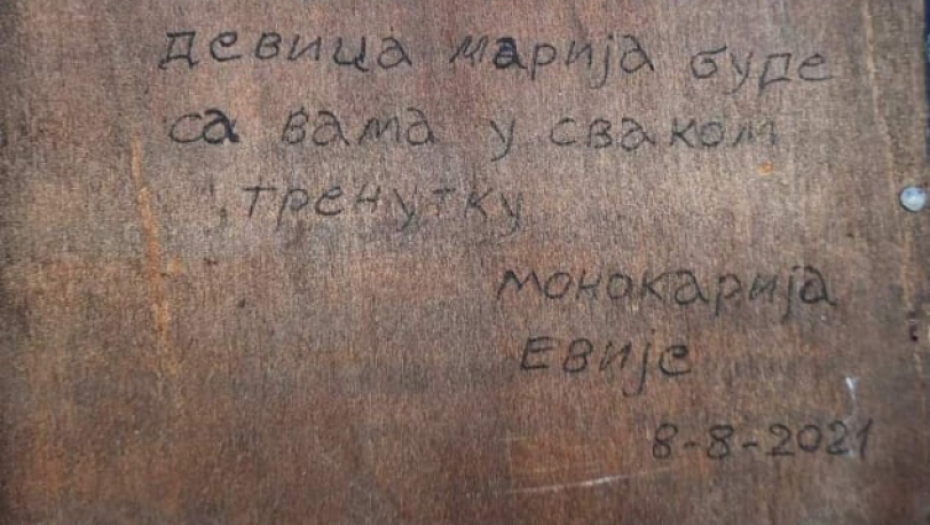 девица марија буде
са вама у сваком
тренутку
монокарија
Евије
8-8-2021